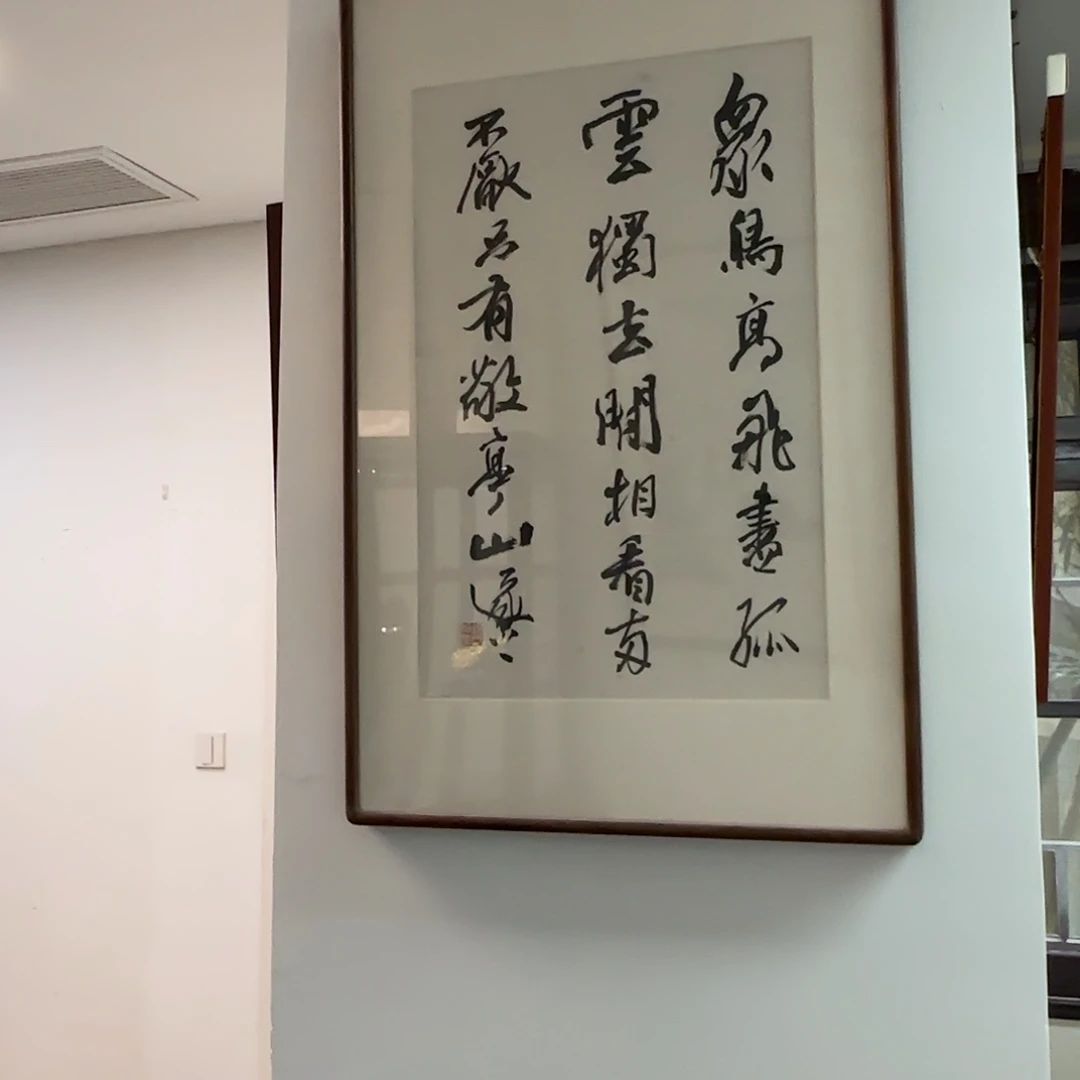 衆鳥高飛盡孤
雲獨去閒相看兩
不厭只有敬亭山